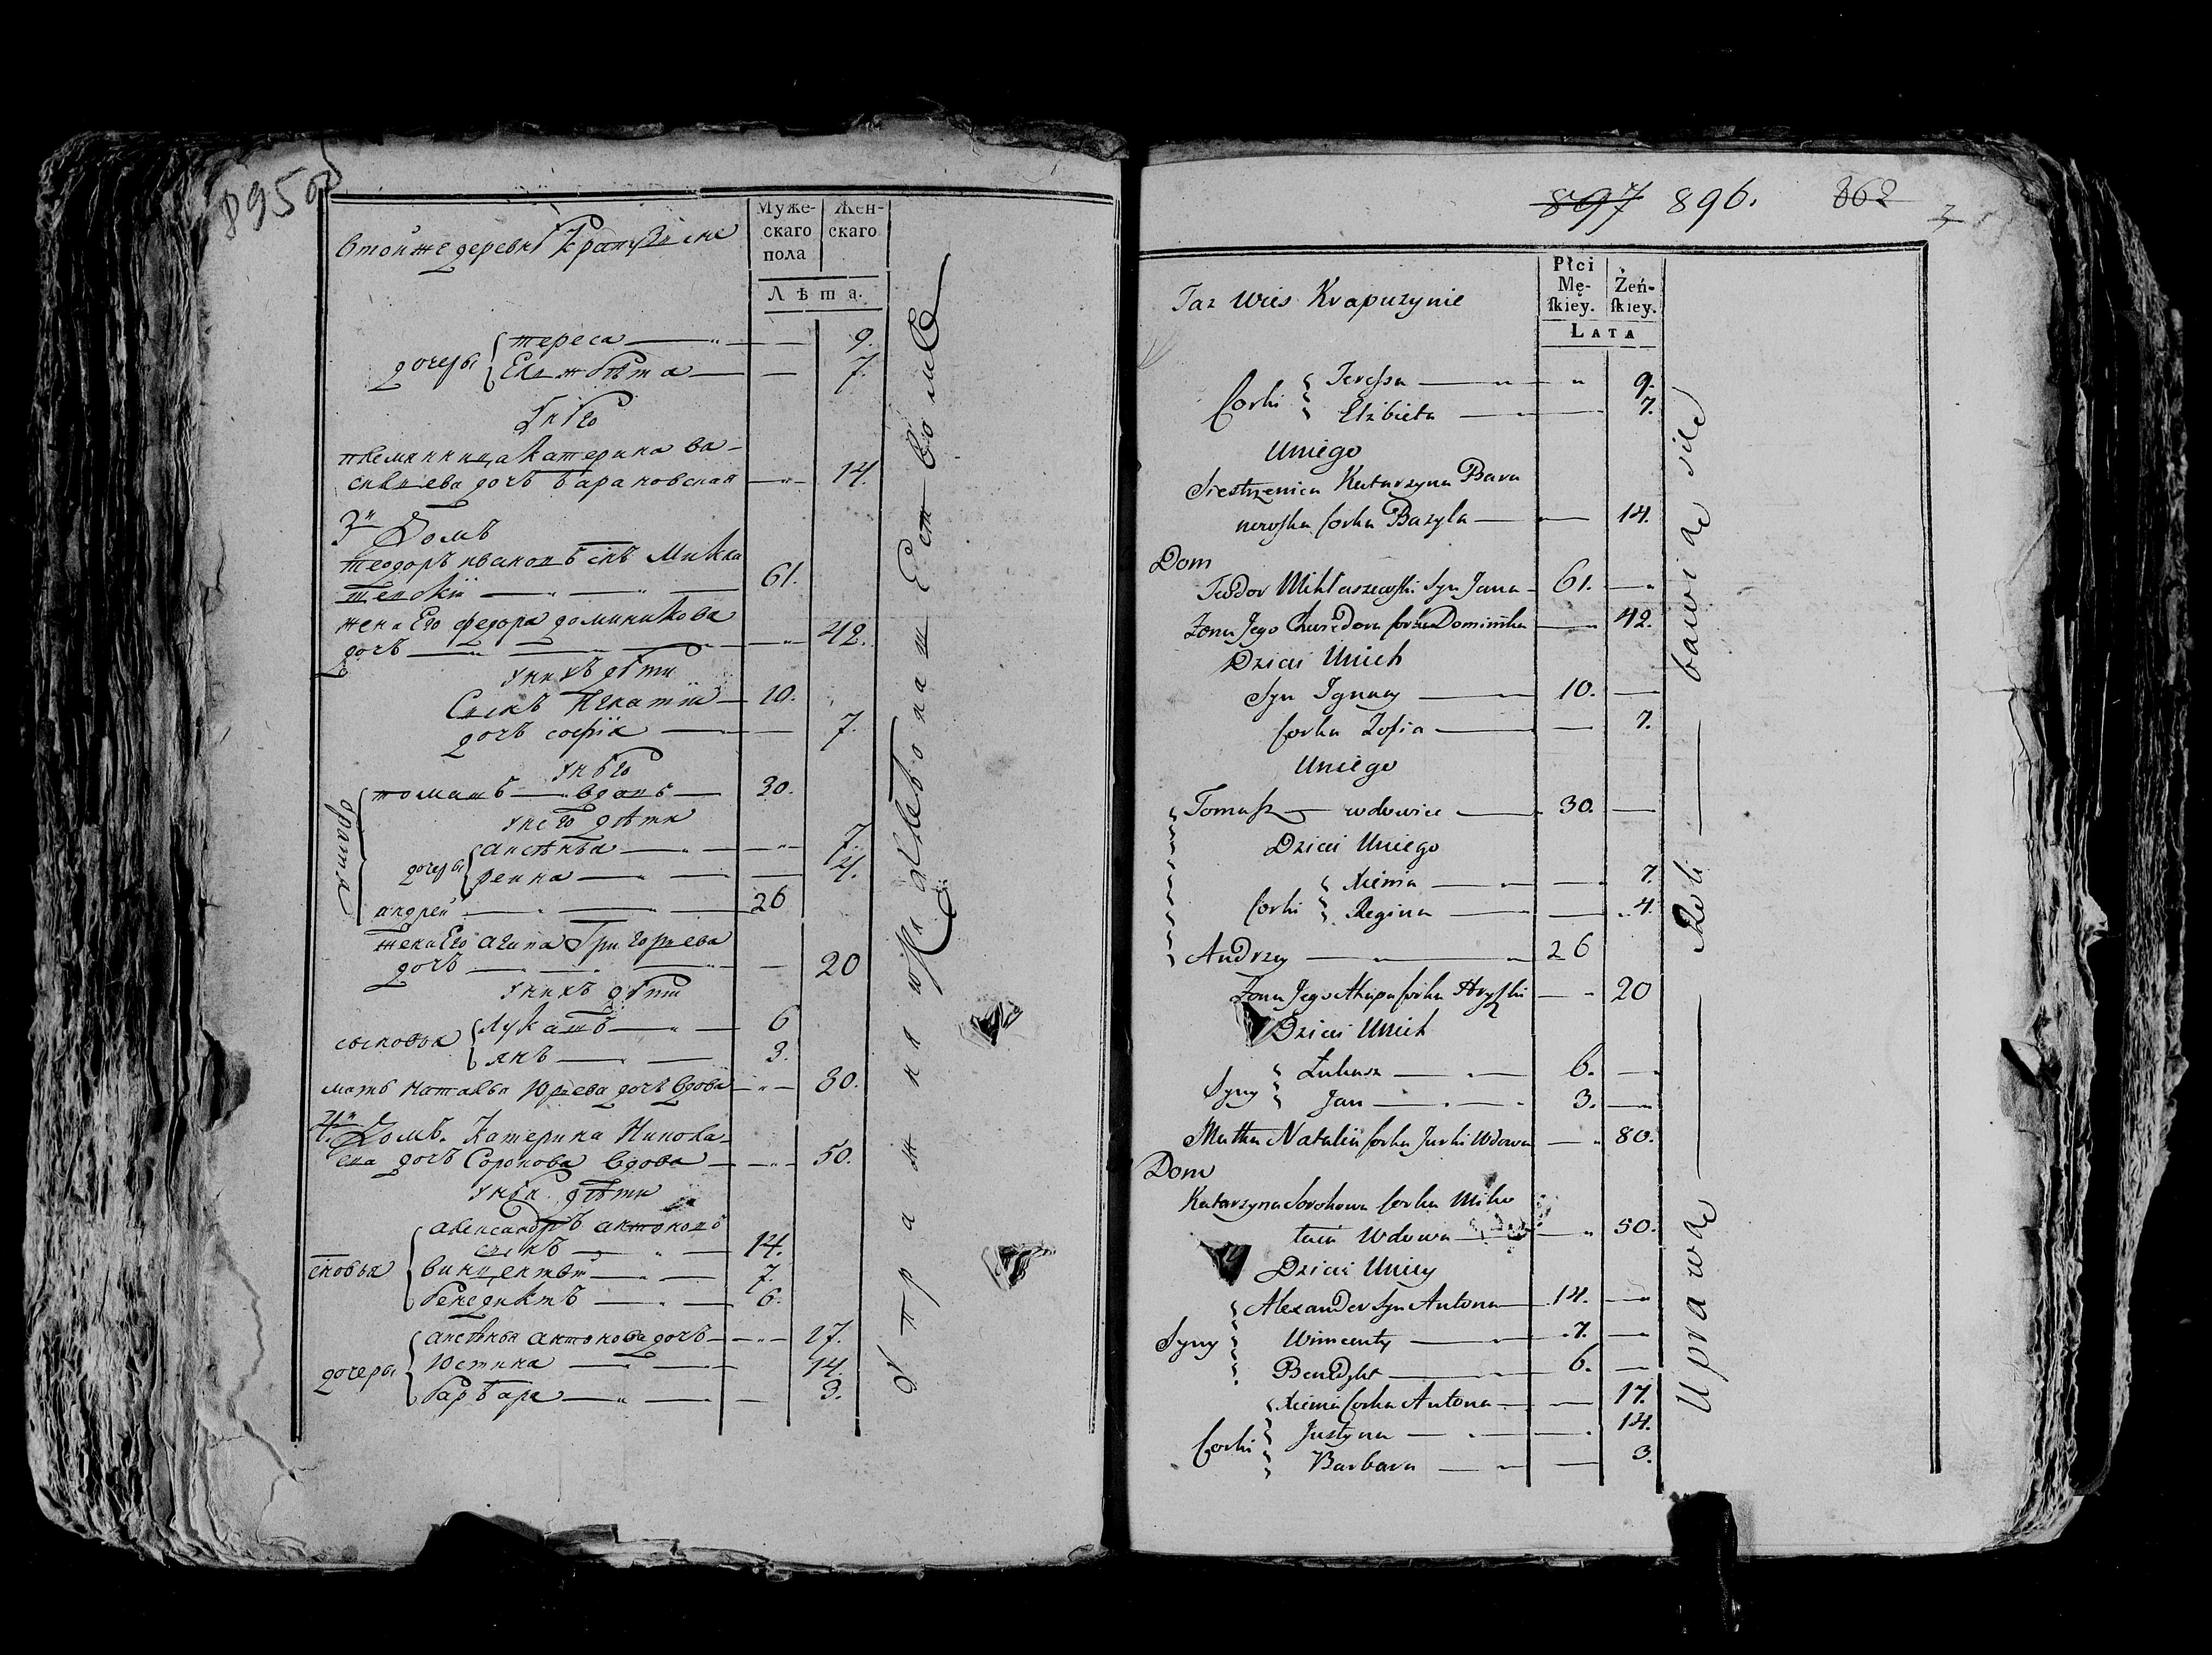 895об
Мужескаго пола
Женскаго
Лѣта.
Втойже деревнѣ Крапузине
дочеры
тереса 9.
Елжбѣта 7.
Унѣго
племянница Катерина ва-
сильева дочъ Барановская 14.
3й Домъ
теодоръ ивановъ снъ Микла
шевскій 61.
жена Его федора доминикова
дочъ 42.
унихъ дѣти
Сынъ Игнатій 10.
дочъ софія 7.
унѣго
братья
томашъ вдовъ 30.
унего дѣти
дочеры
аксѣнья 7.
реина 4.
андрей 26
жена Его агипа Григорьева
дочъ 20
унихъ дѣти
сыновья
Лукашъ 6
янъ 3.
мать Наталья Юрьева дочъ вдова 80.
4й Домъ. Катерина Никола-
ева дочъ Сорокова вдова 50.
унѣи дѣти
сновья
александръ антоновъ
сынъ 14.
винцентый 7.
бенедиктъ 6.
дочеры
аксѣнья антонова дочъ 17.
Юстина 14.
барбара 3.
897 896. 862
Płci Mę-
skiey.
Żeń-
skiey.
LATA
Taz wies Krapuzynie
Corki
Teressa 9.
Elżbieta 7.
Uniego
Siestrzenica Katarzyna Bara
nowska Corka Bazyla 14.
Dom
Teodor Mikłaszewski Syn Jana 61.
Żona Jego Chwiedora Corka Dominika 42.
Dzieci Unich
Syn Ignacy 10.
Corka Zofia 7.
Uniego
Tomasz wdowiec 30.
Dzieci Uniego
Corki
Xienia 7.
Regina 4.
Andrzey 26
Żona Jego Ahapa Corka Hryśki 20
Dzieci Unich
Syny
Łukasz 6.
Jan 3.
Matka Natalia Corka Jurki Wdowa 80.
Dom
Katarzyna Sorokowa Corka Miko
łaia Wdowa 50.
Dzieci Uniey
Syny
Alexander Syn Antona 14.
Wincenty 7.
Benedykt 6.
Corki
Xienia Corka Antona 17.
Justyna 14.
Barbara 3.
Uprawą Roli bawią się